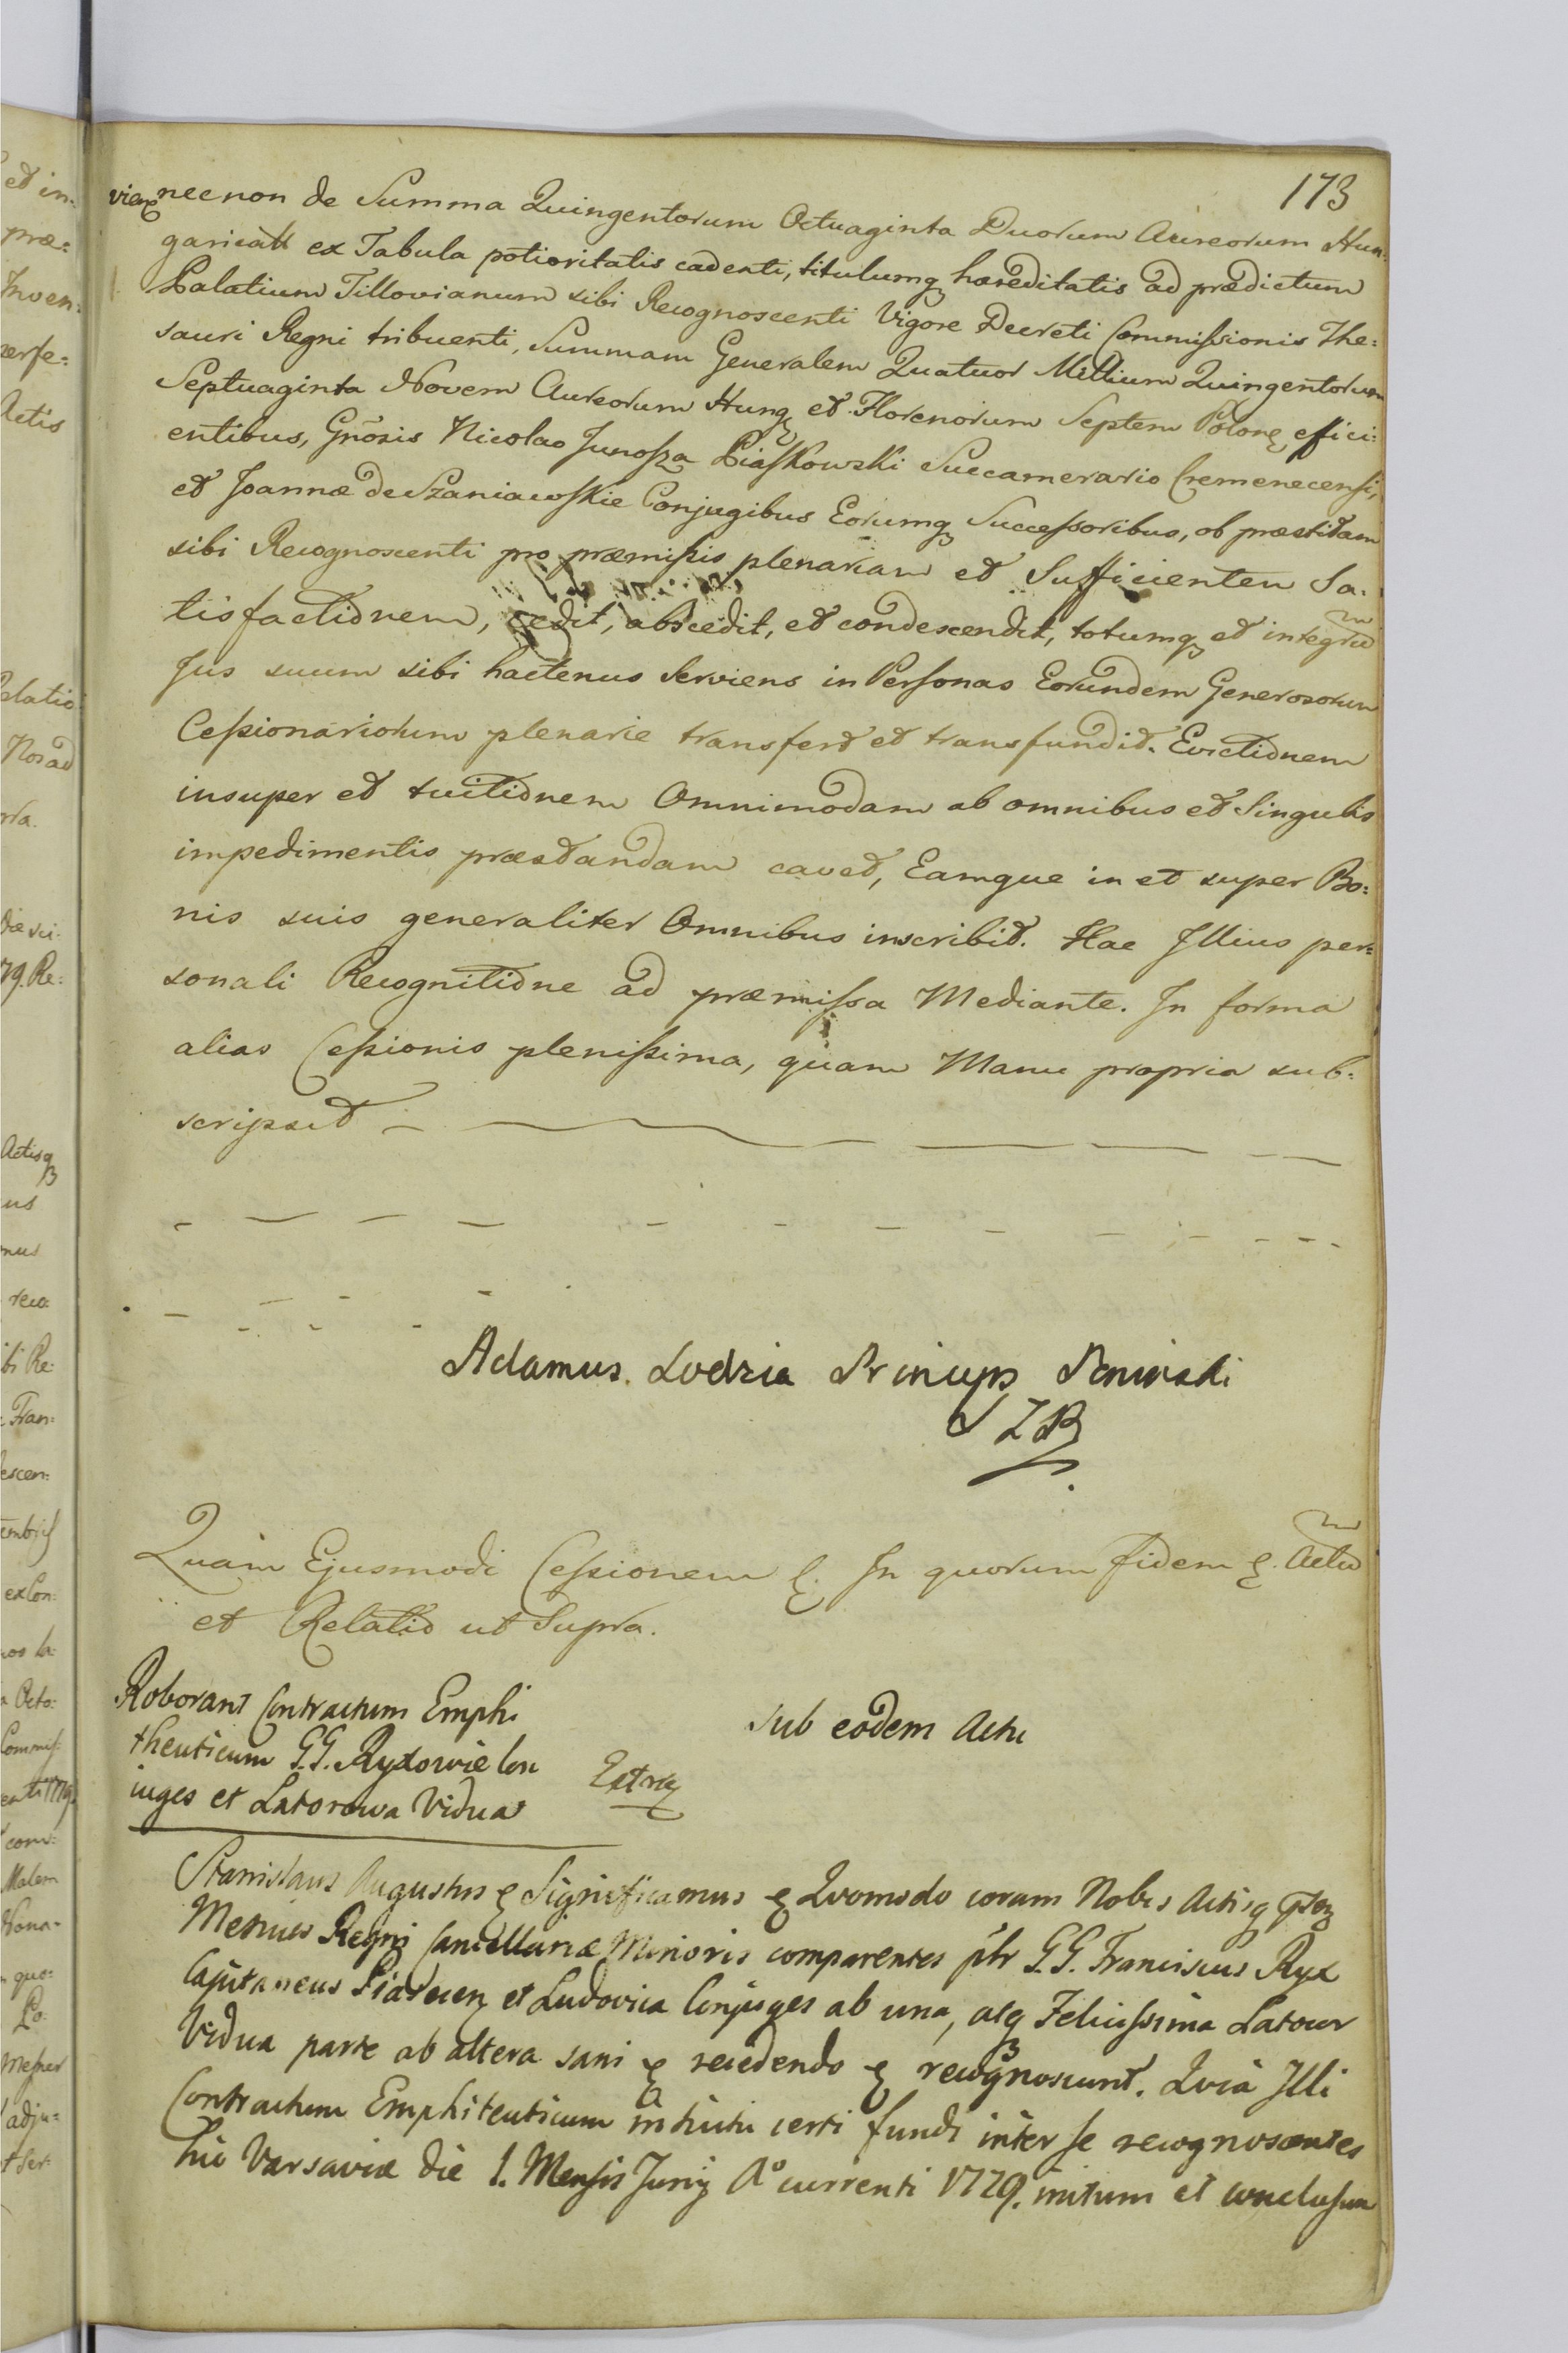 173
nec non de Summa Quingentorum Octuaginta Duorum Aureorum Hun:
garicall ex Tabula potioritatis cadenti, titulumq hæreditatis ad prædictum
Palatium Tillovianum sibi Recognoscenti Vigore Decreti Commissionis The:
sauri Regni tribuenti, Summam Generalem Quatuor Millium Quingentorum
Septuaginta Novem Aureorum Hung et Florenorum Septem Polon effici:
entibus, Gnosis Nicolao Junosza Piaskowski Succamerario Cremenecensi,
et Joannæ de Szaniawskie Conjugibus Eorumq Successoribus, ob præstitam
sibi Recognoscenti pro præmissis plenariam et Sufficientem Sa:
tisfactionem, cedit, abscedit, et condescendit, totumq et integru
Jus suum sibi hactenus Serviens in Personas Eorundem Generosorum
Cessionariorum plenarie transfert et transfundit. Evictionem
insuper et tuitionem Omnimodam ab omnibus et Singulis
impedimentis præstandam cavet, Eamque in et super Bo:
nis suis generaliter Omnibus inscribit. Hac Illius per:
sonali Recognitione ad præmissa Mediante. In forma
alias Cessionis plenissima, quam Manu propria sub:
scripsit
Adamus Lodzia Princeps Poninski
Quam Ejusmodi Cessionem &. In quorum fidem &. Actu
et Relatio ut Supra.
Roborant Contractum Emphi
theuticum G.G. Ryxowie Con
iuges et Latorowa Vidua
Extrq
Sub eodem Actu
Stanislaus Augustus & Significamus & Quomodo coram Nobis Actisq
Metrices Regni Cancellariæ Minoris comparentes ptr G.G. Franciscus Ryx
Capitaneus Piasecen et Ludovica Conjuges ab una, atq Felicissima Latour
Vidua parte ab altera sani & recedendo & recognoscunt. Quia Illi
Contractum Emphiteuticum intuitu certi fundi inter se recognoscentes
hic Varsaviæ die 1. Mensis Junij Aº currenti 1779. initum et conclusum